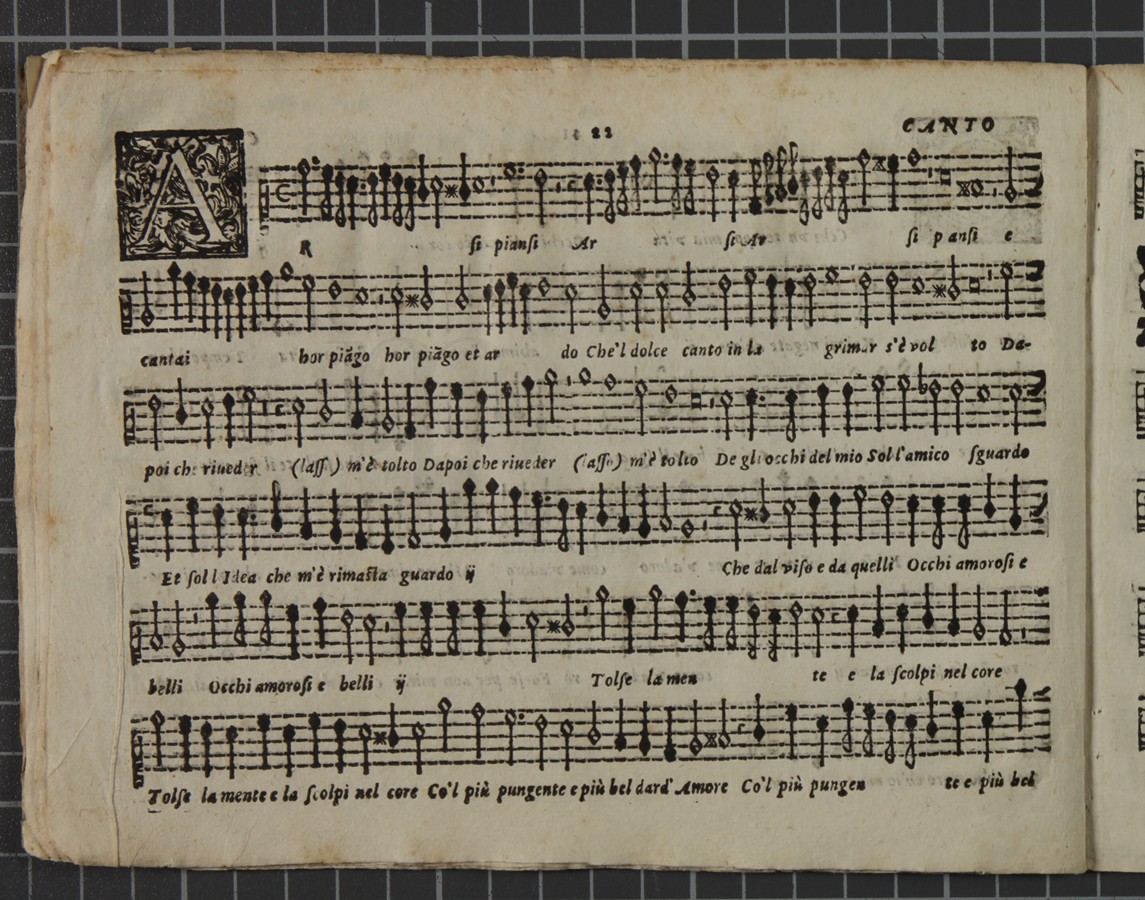 22
CANTO
A R si piansi Ar si Ar si p ansi e
cantai hor piãgo hor piãgo et ar do Che'l dolce canto in la grimar s'è vol to Da-
poi che riueder (lasso) m'è tolto Dapoi che riueder (lasso) m'è tolto De gli occhi del mio Sol l'amico sguardo
Et sol l Idea che m'è rimasta guardo ij Che dal viso e da quelli Occhi amorosi e
belli Occhi amorosi e belli ij Tolse la men te e la scolpi nel core
Tolse la mente e la scolpi nel core Co'l più pungente e più bel dard' Amore Co'l più pungen te e più bel